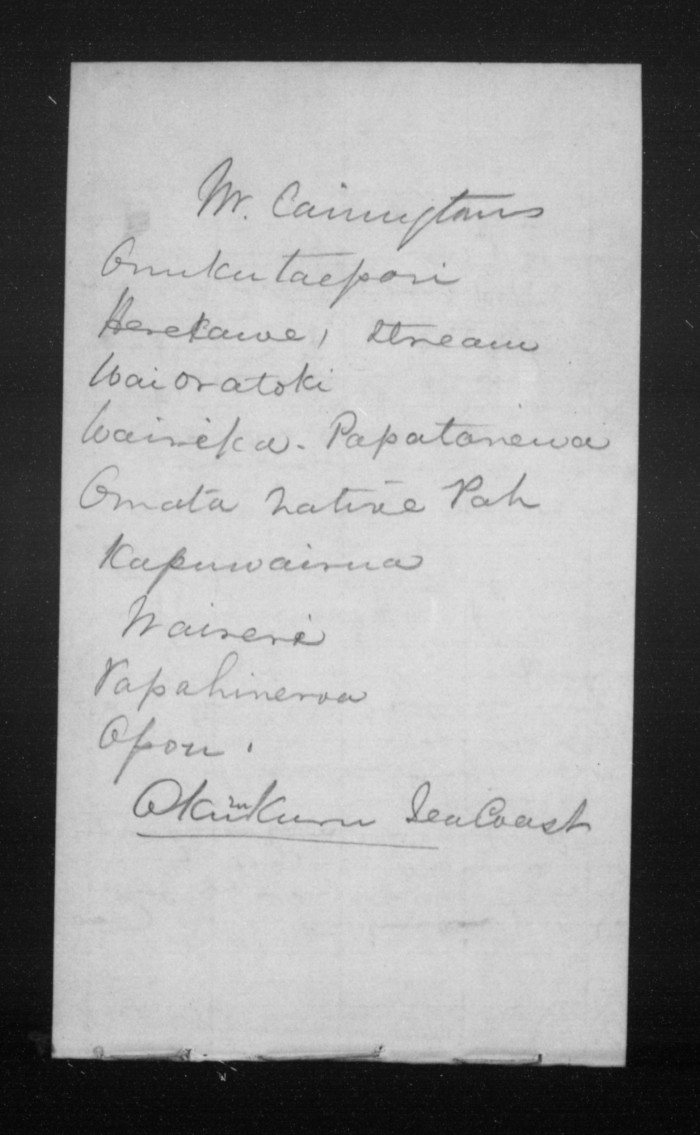 Mr. Carringtons
Omukutaepori
Herekawe, Stream
Waioratoki
Waireka. Papatanewa
Omata Native Pah
Kapuwairua
Waireri
Papahineroa
Opou.
Sea Coast